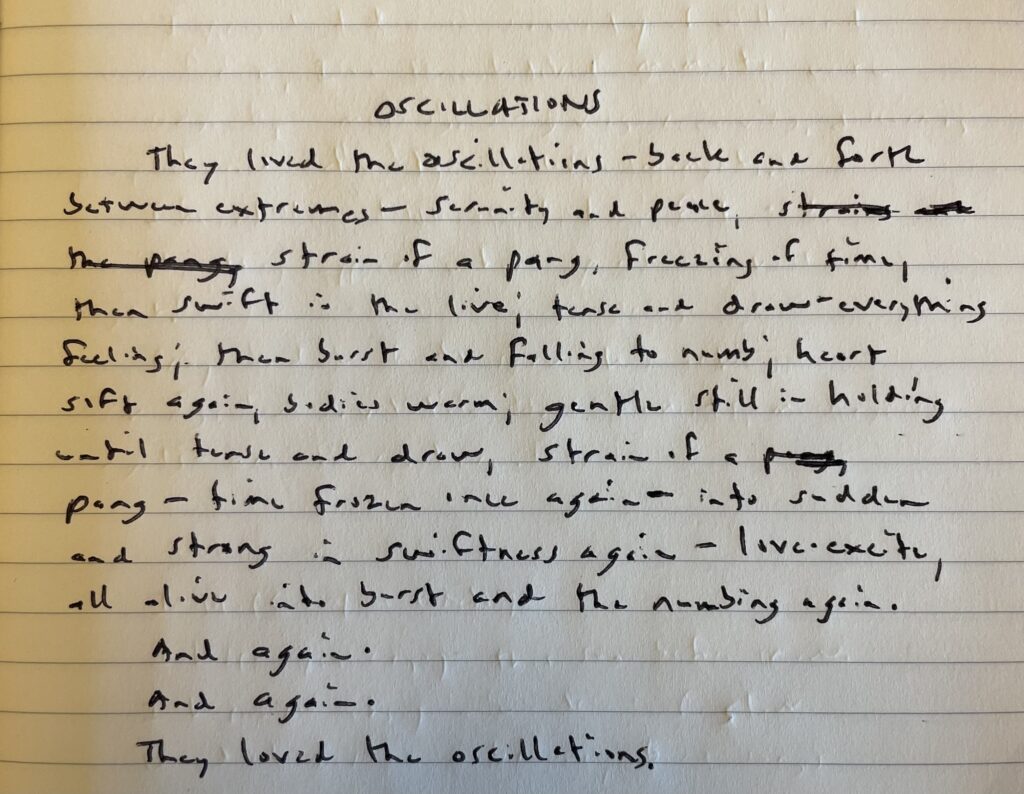 OSCILLATIONS
They lived the oscillations - back and forth
between extremes - serenity and peace, strains and
the pang, strain of a pang, freezing of time,
then swift is the live; tense and draw - everything
feeling; then burst and falling to numb; heart
soft again, bodies warm; gentle still in holding
until tense and draw, strain of a pang,
pang - time frozen once again - into sudden
and strong in swiftness again - love-excite,
all alive into burst and the numbing again.
And again.
And again.
They loved the oscillations.